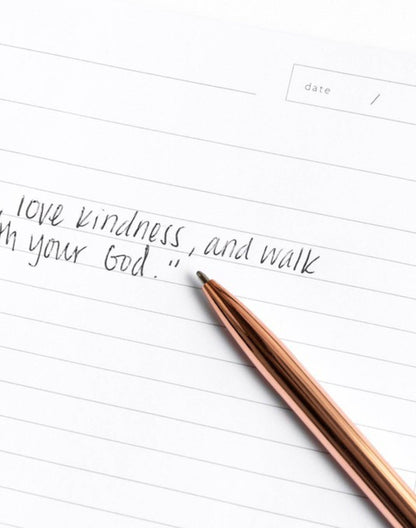 date /
, love kindness, and walk
th your God."